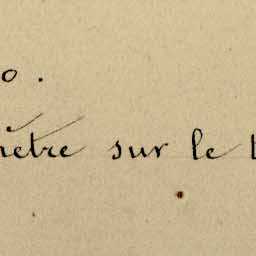 o.
mètre sur le